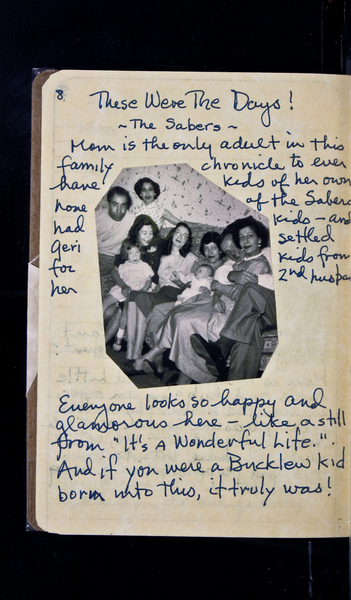 8
These Were The Days!
~ The Sabers ~
Mom is the only adult in this
family chronicle to ever
have kids of her own
none of the Sabers
had kids — and
Geri settled
for kids from
her 2nd husba
Everyone looks so happy and
glamorous here - like a still
from "It's A Wonderful Life."
And if you were a Bucklew kid
born into this, it truly was!